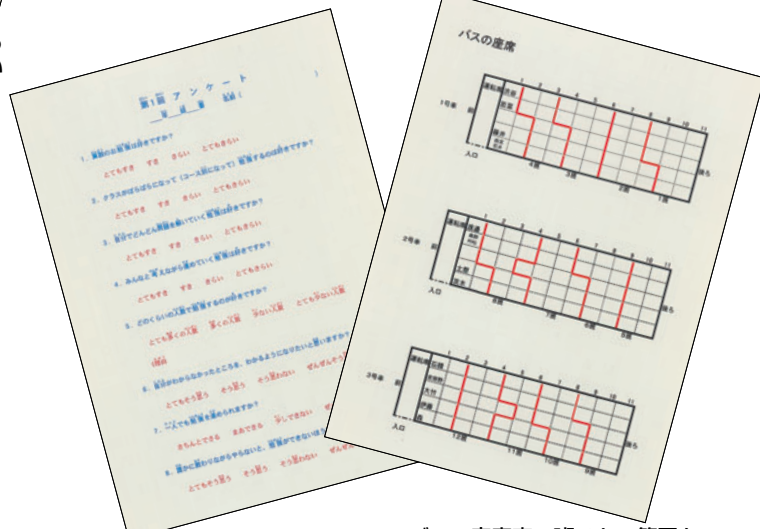 第1回 アンケート
年 組 番 名前 ( )
1. 算数のお勉強は好きですか?
とてもすき すき きらい とてもきらい
2. クラスがばらばらになって(コース別になって)勉強するのは好きですか?
とてもすき すき きらい とてもきらい
3. 自分でどんどん問題を解いていく勉強は好きですか?
とてもすき すき きらい とてもきらい
4. みんなと考えながら進めていく勉強は好きですか?
とてもすき すき きらい とてもきらい
5. どのくらいの人数で勉強するのが好きですか?
とても多くの人数 多くの人数 少ない人数 とても少ない人数
6. 自分がわからなかったところを、わかるようになりたいと思いますか?
とてもそう思う そう思う そう思わない ぜんぜんそう
7. 一人でも勉強を進められますか?
きちんとできる まあできる 少しできない
8. 誰かに教わりながらやらないと、勉強ができないほう
とてもそう思う そう思う そう思わない ぜんぜん
バスの座席
1 2 3 4 5 6 7 8 9 10 11
1号車 前 運転席
後ろ
入口
4班 3班 2班 1班
1 2 3 4 5 6 7 8 9 10 11
2号車 前 運転席
土屋
後ろ
入口
8班 7班 6班 5班
1 2 3 4 5 6 7 8 9 10 11
3号車 前 運転席
大竹
伊藤
後ろ
入口
12班 11班 10班 9班